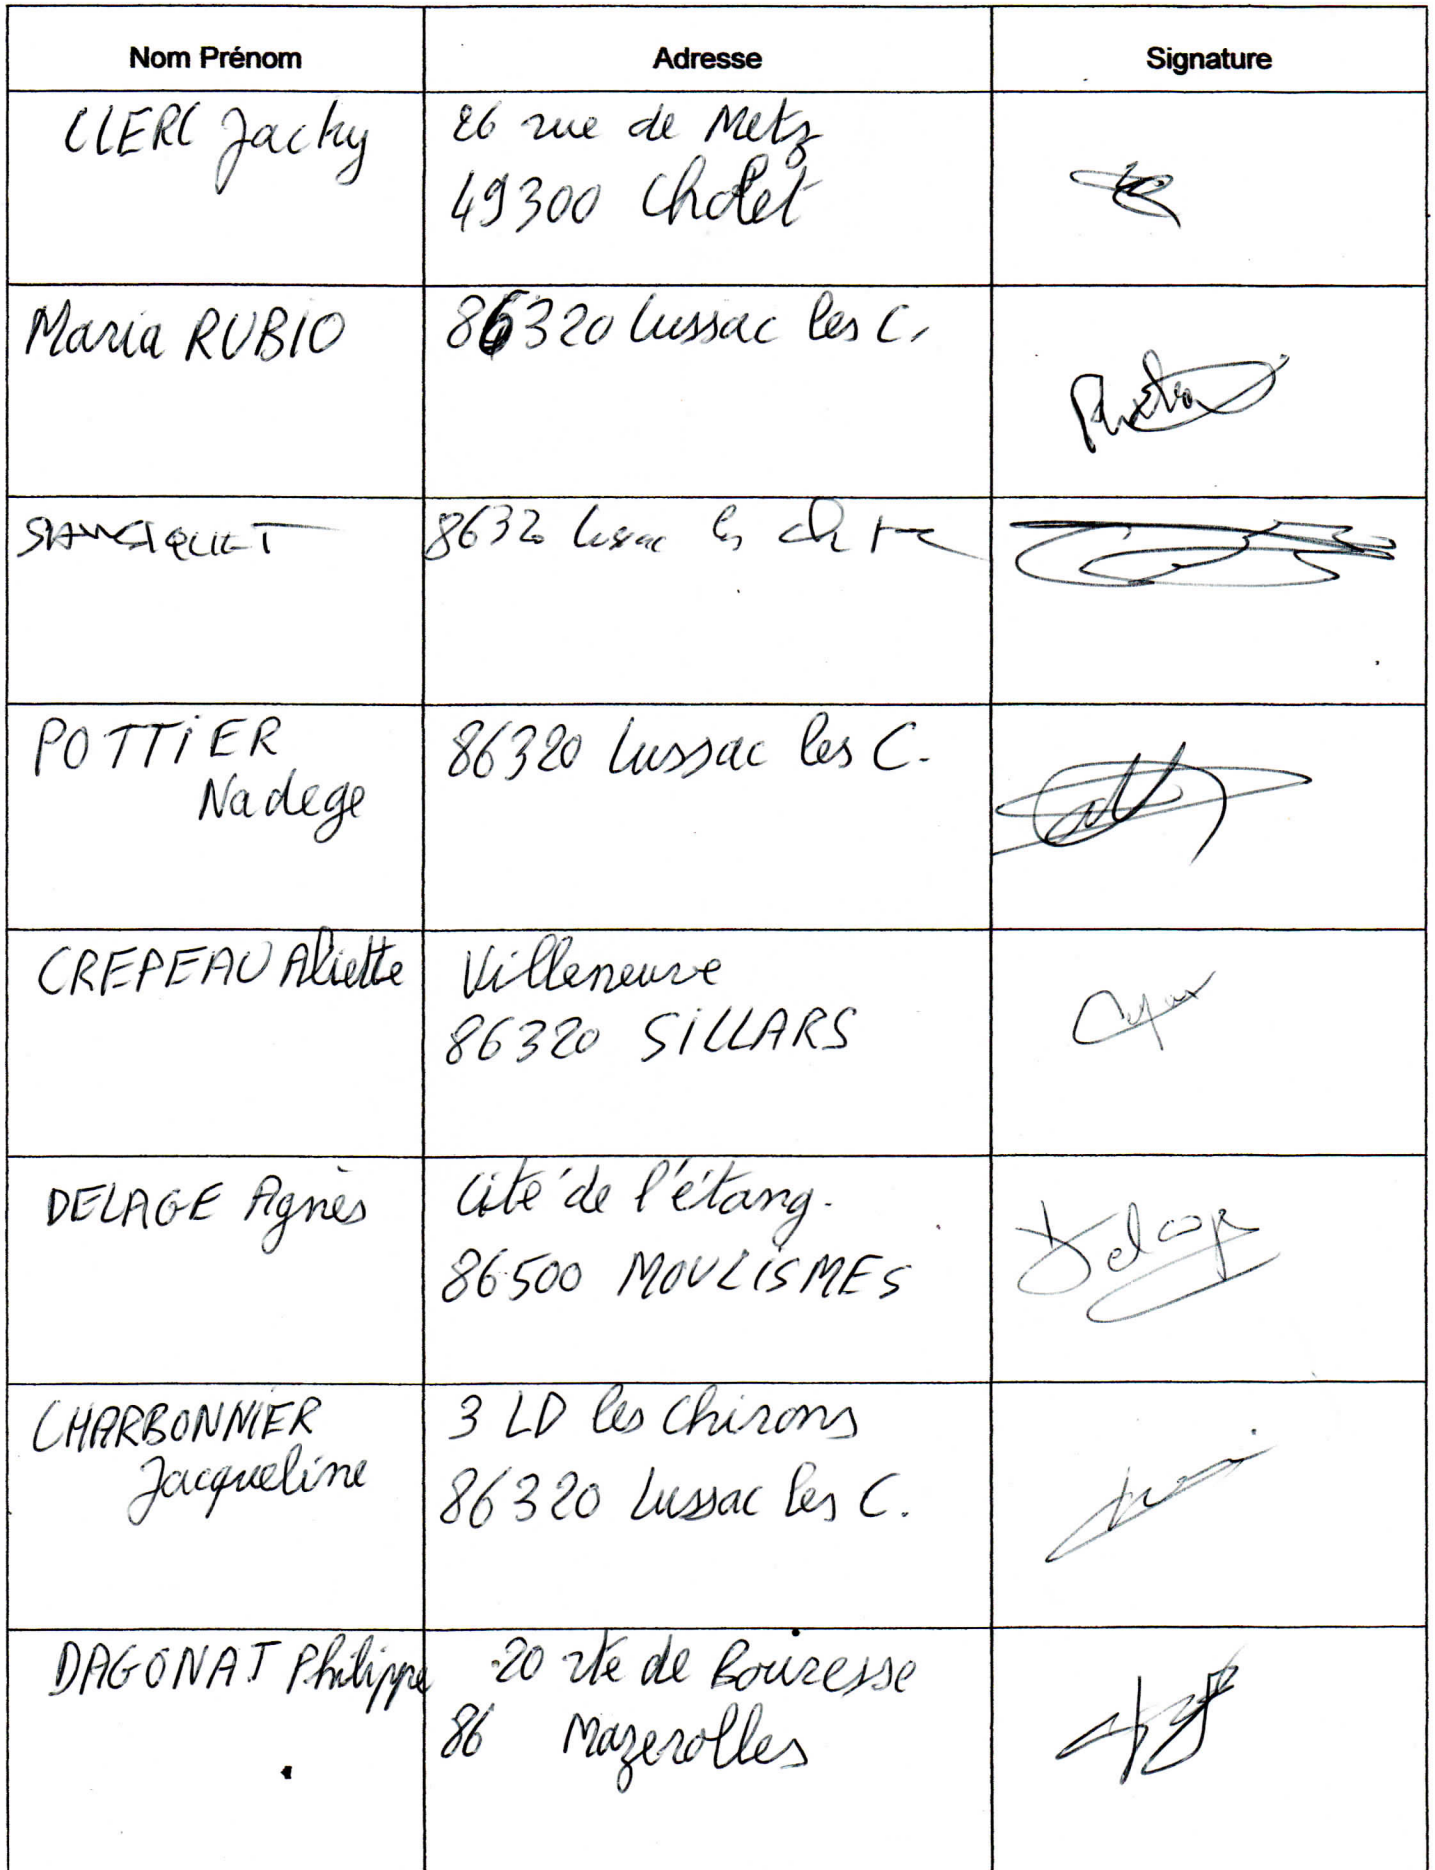 Nom Prénom Adresse Signature
CLERC Jacky
26 rue de Metz
49300 Cholet
Maria RUBIO
86320 Lussac les C.
8632
POTTiER
Nadege
86320 Lussac les C.
CREPEAU Aliette
Villeneuve
86320 SiLLARS
DELAGE Agnès
Cité de l'étang.
86500 MOULiSMES
Delage
CHARBONNIER
Jacqueline
3 LD les Chirons
86320 Lussac les C.
DAGONAT Philippe
20 rte de Bouresse
86 Mazerolles